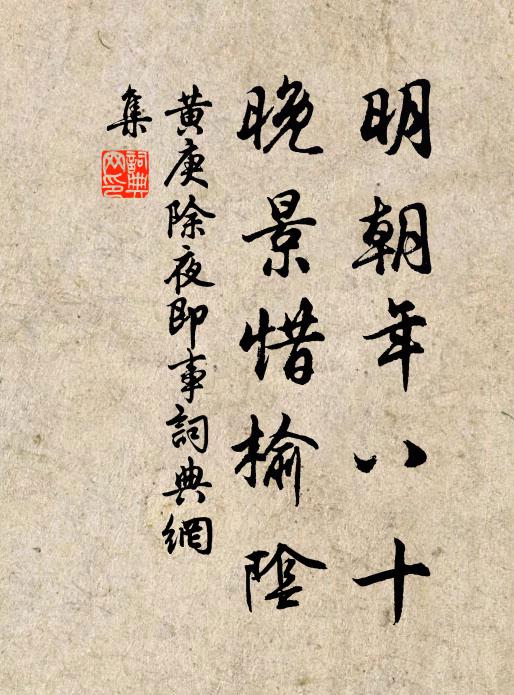 明朝年八十
晚景惜榆陰
黄庚除夜即事詞典網
集
詞典
网印